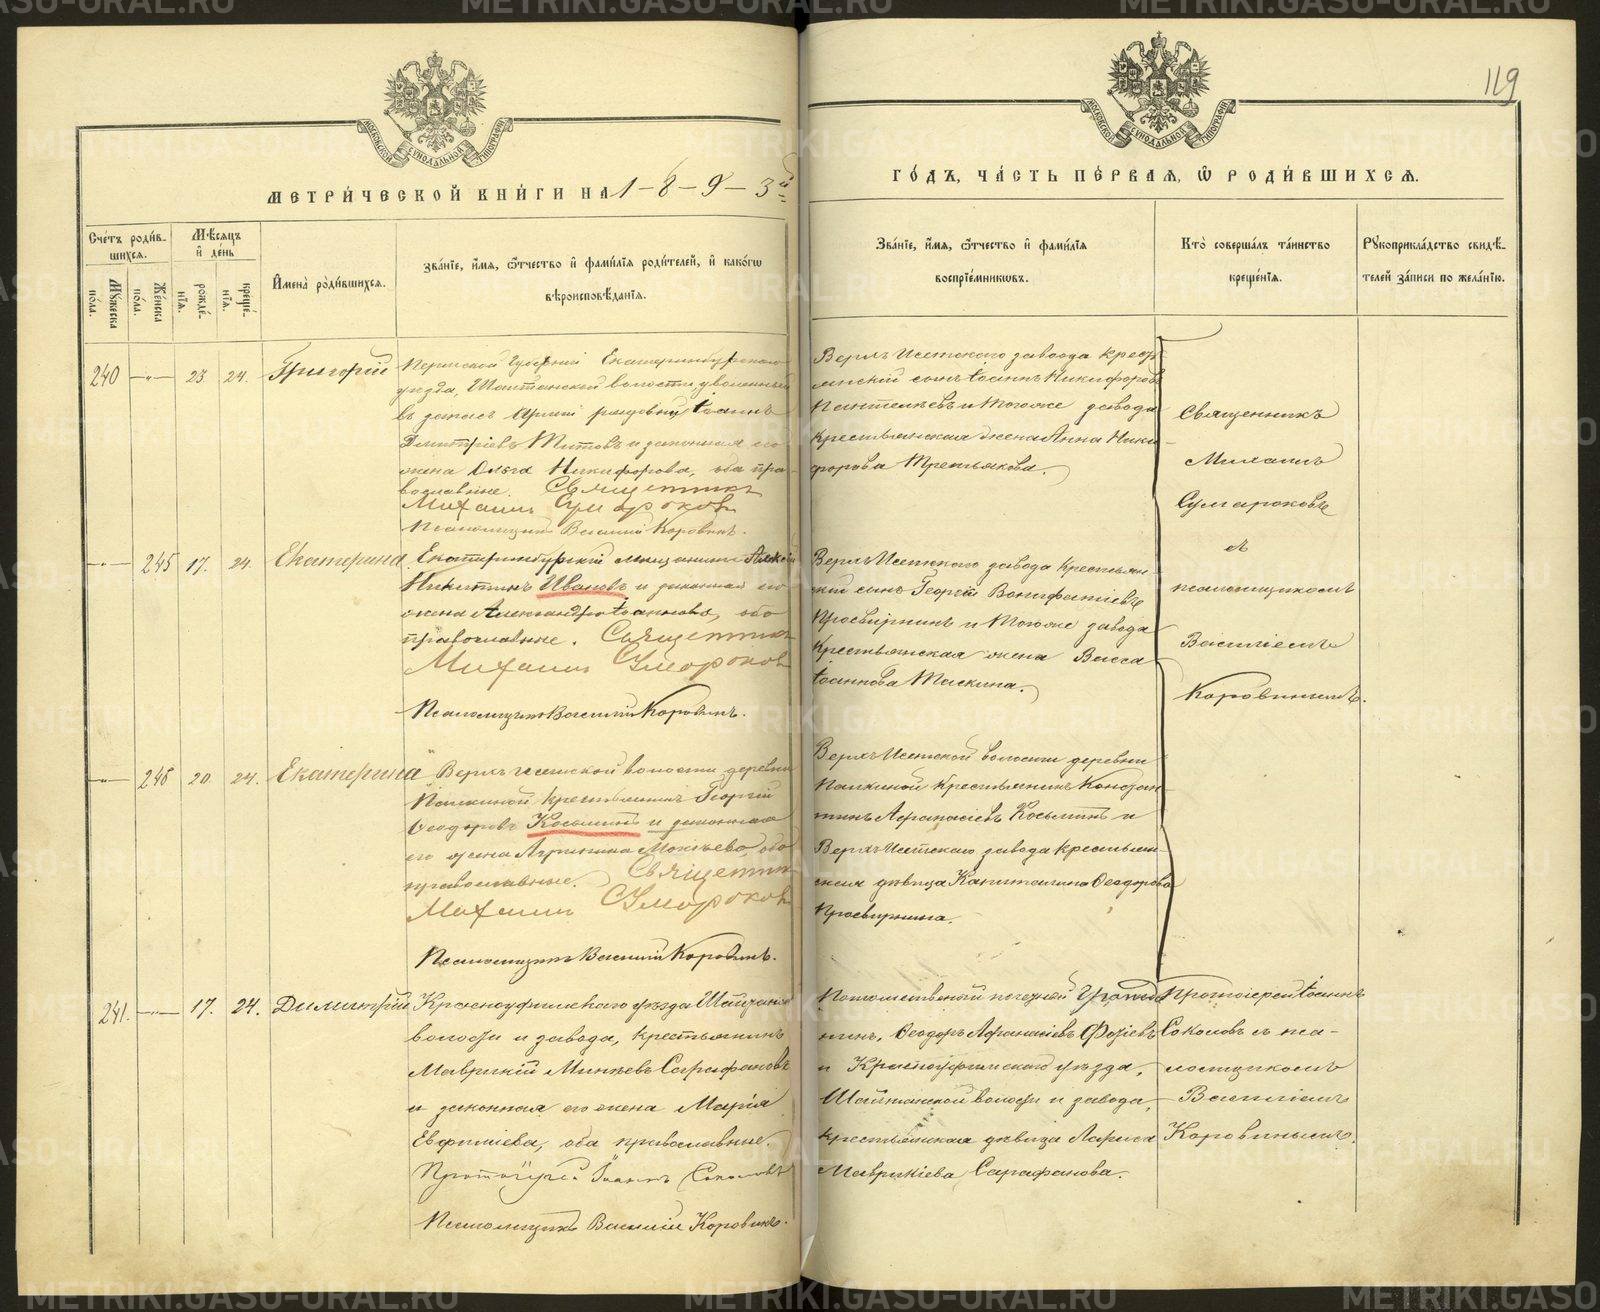 119
МОСКОВСКОЙ СѴНОДАЛЬНОЙ ТИПОГРАФІИ
МОСКОВСКОЙ СѴНОДАЛЬНОЙ ТИПОГРАФІИ
МЕТРИ́ЧЕСКОЙ КНИ́ГИ НА 1-8-9-3й
ГО́ДЪ, ЧА́СТЬ ПЕ́РВАЯ, Ѡ РОДИ́ВШИХСЯ.
Сче́тъ роди́в-
шихся.
Мѣ́сяцъ
и де́нь
Му́жеска
по́ла.
Же́нска
по́ла.
рожде́-
нія.
креще́-
нія.
Имена̀ роди́вшихся.
Зва́ніе, и́мя, ѻ́тчество и фами́лія роди́телей, и како́гѡ
вѣроисповѣ́данія.
Зва́ніе, и́мя, ѻ́тчество и фами́лія
воспріе́мниковъ.
Кто̀ соверша́лъ та́инство
креще́нія.
Рꙋкоприкла́дство свидѣ́-
телей за́писи по жела́нію.
240 —„— 23 24. Григорій
Пермской Губерніи Екатеринбургскаго
уѣзда, Шайтанской волости, уволенный
въ запасъ Арміи рядовый Іоаннъ
Димитріевъ Титовъ и законная его
жена Ольга Никифорова, оба пра-
вославные. Священникъ
Михаилъ Сумароковъ
Псаломщикъ Василій Коровинъ.
Верхъ-Исетскаго завода крестъ-
янскій сынъ Іоаннъ Никифоровъ
Пантелѣевъ и тогоже завода
крестьянская жена Анна Ники-
форова Третьякова.
Священникъ
Михаилъ
Сумароковъ
съ
псаломщикомъ
Василіемъ
Коровинымъ.
—„— 245 17. 24. Екатерина
Екатеринбургскій мѣщанинъ Алексѣй
Никитинъ Ивановъ и законная его
жена Александра Іоаннова, оба
православные. Священникъ
Михаилъ Сумароковъ
Псаломщикъ Василій Коровинъ.
Верхъ-Исетскаго завода Крестьян-
скій сынъ Георгій Вонифатіевъ
Просвирнинъ и тогоже завода
Крестьянская жена Васса
Іоаннова Таскина.
—„— 246 20 24. Екатерина
Верхъ-Исетской волости деревни
Палкиной, крестьянинъ Георгій
Ѳеодоровъ Косьминъ и законная
его жена Агрипина Мокѣева, оба
православные. Священник
Михаилъ Сумароков
Псаломщикъ Василій Коровинъ.
Верхъ-Исетской волости деревни
Палкиной крестьянинъ Констан-
тинъ Аѳанасіевъ Косьминъ и
Верхъ-Исетскаго завода крестьян-
ская дѣвица Капиталина Ѳеодорова
Просвирнина.
241. —„— 17. 24. Димитрій
Красноуфимскаго уѣзда Шайтанской
волости и завода, крестьянинъ
Маврикій Минѣевъ Сарафановъ
и законная его жена Марія
Евфиміева, оба православные.
Протоіерей Іоаннъ Соколовъ
Псаломщикъ Василій Коровинъ.
Потомственный почетный Гражда-
нинъ, Ѳеодоръ Аѳанасіевъ
и Красноуфимскаго уѣзда,
Шайтанской волости и завода,
крестьянская дѣвица Лариса
Маврикіева Сарафанова.
Протоіерей Іоаннъ
Соколовъ съ пса-
ломщикомъ
Василіемъ
Коровинымъ.
METRIKI.GASO-URAL.RU